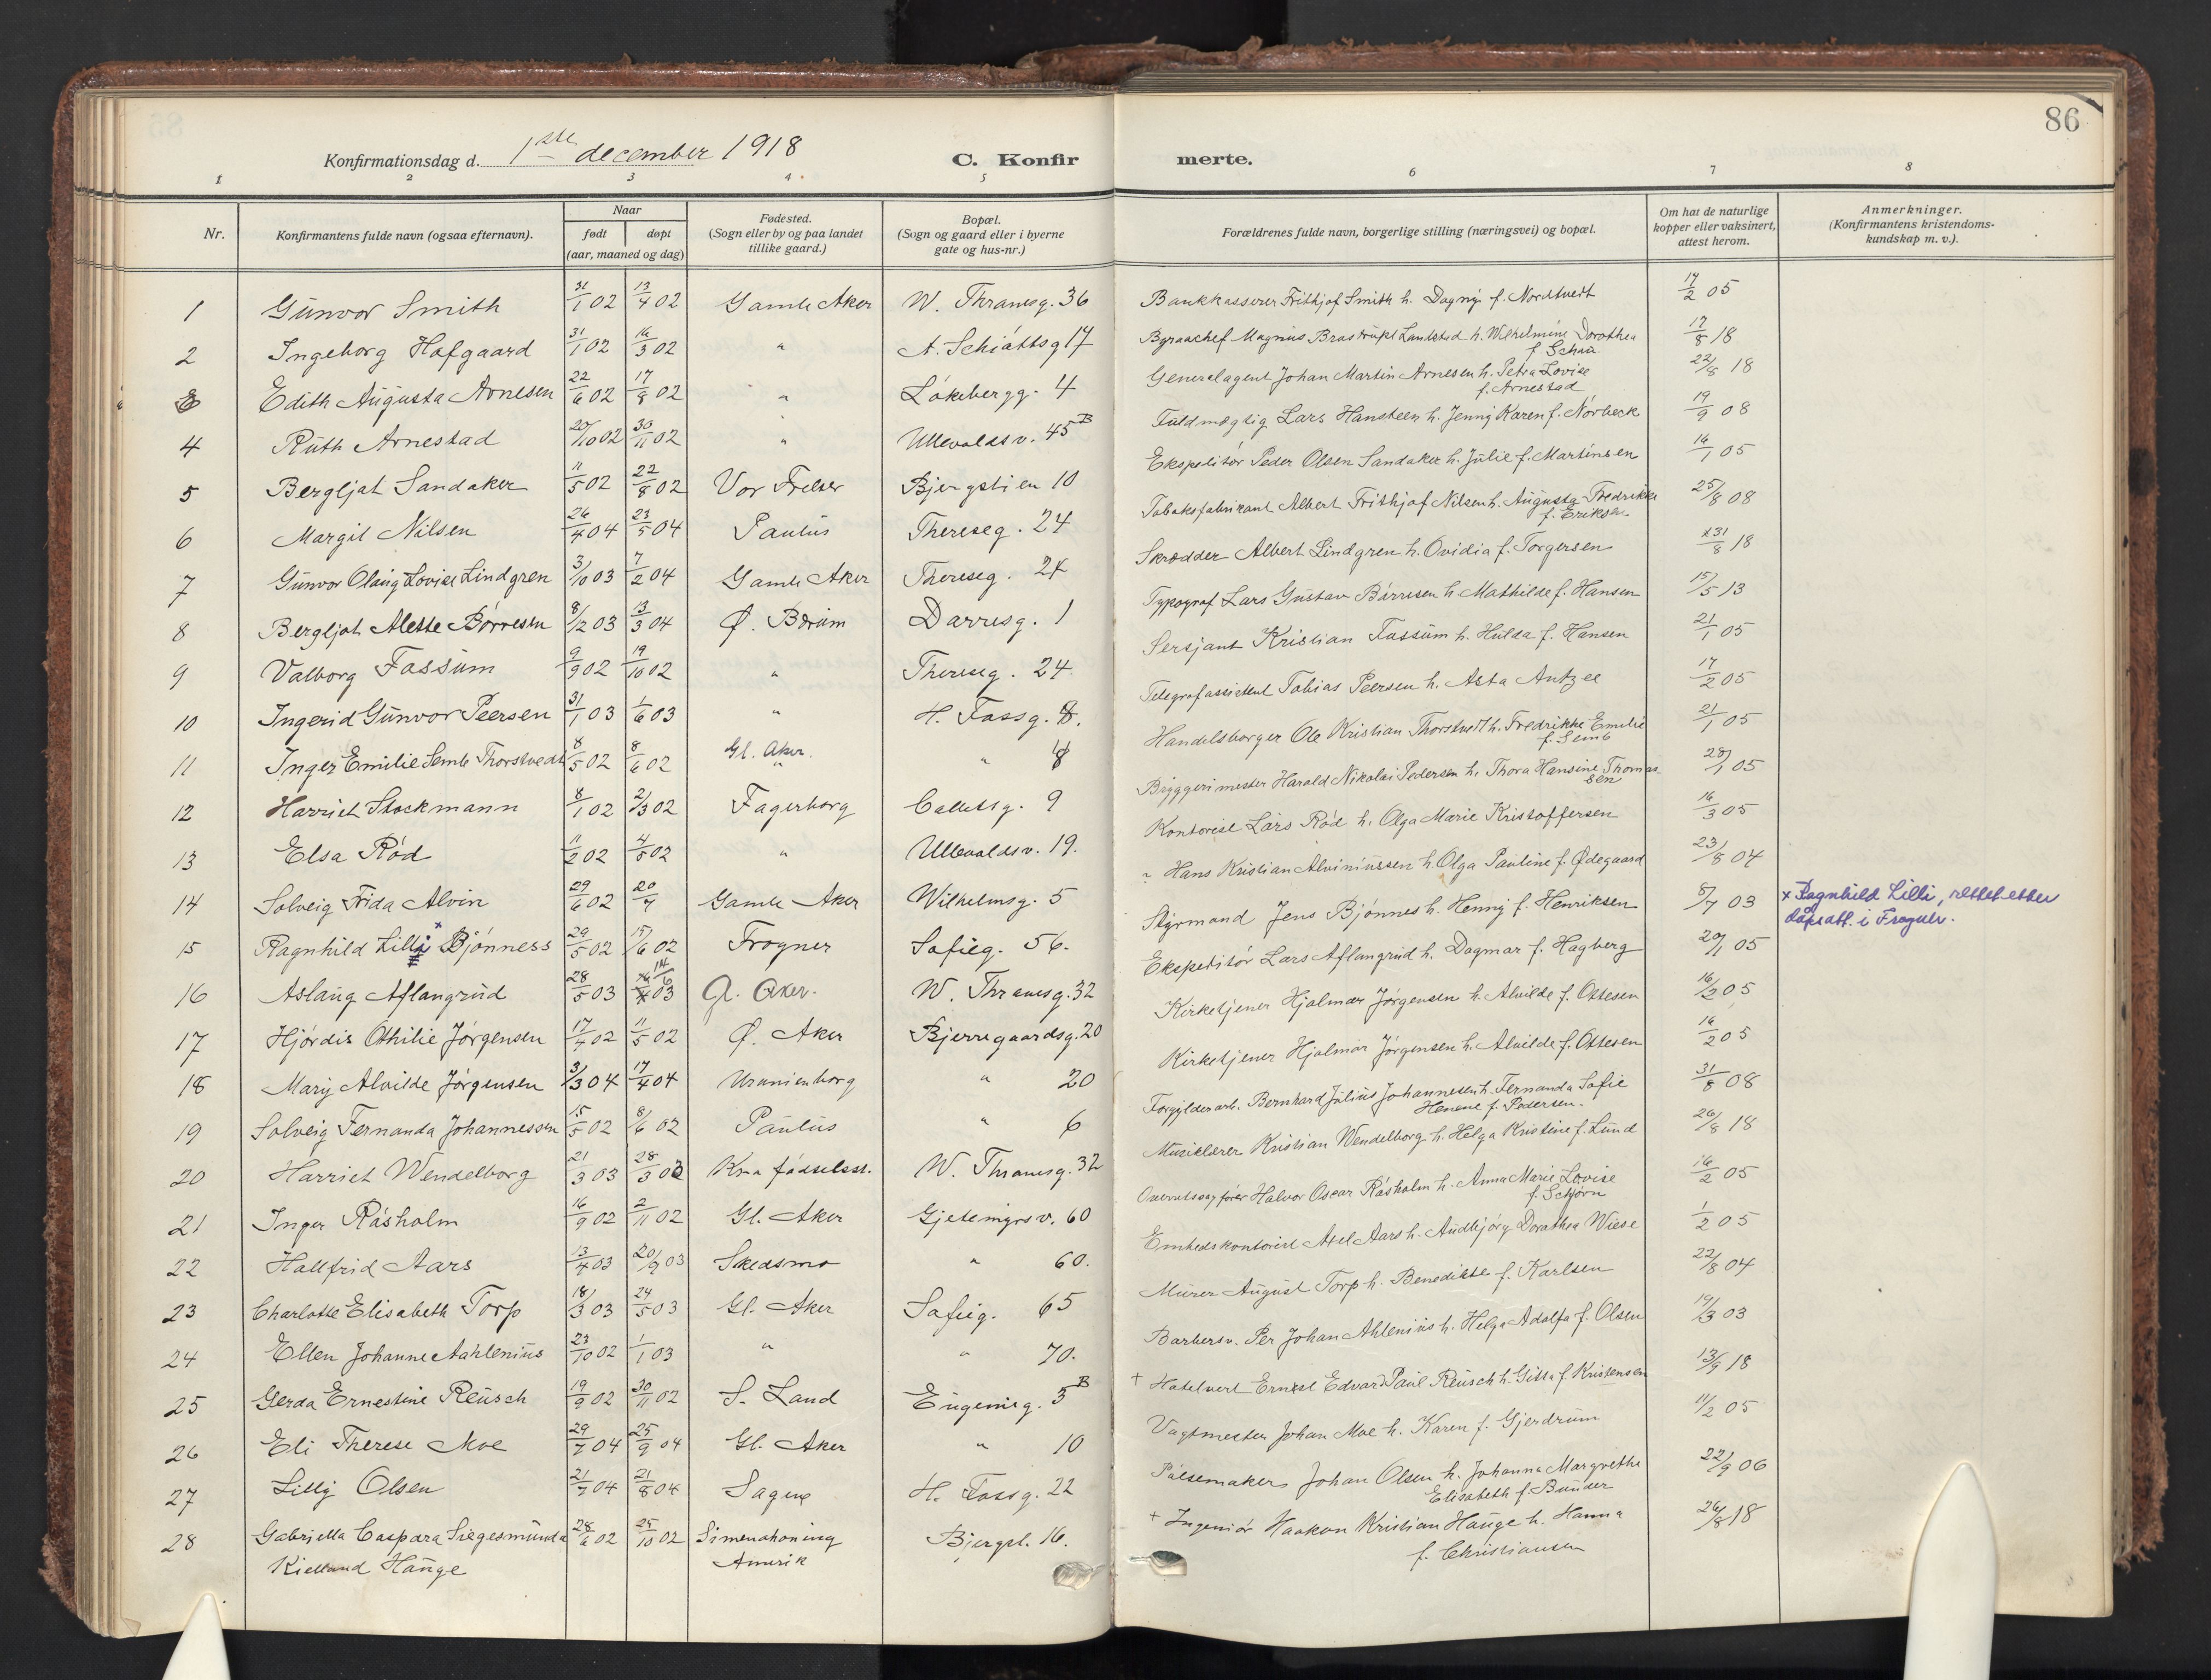 86
Konfirmationsdag d. 1ste december 1918
C. Konfir
merte.
1 2 3 4 5 6 7 8
Nr.
Konfirmantens fulde navn (ogsaa efternavn).
Naar
født døpt
(aar, maaned og dag)
Fødested.
(Sogn eller by og paa landet
tillike gaard.)
Bopæl.
(Sogn og gaard eller i byerne
gate og hus-nr.)
Forældrenes fulde navn, borgerlige stilling (næringsvei) og bopæl.
Om hat de naturlige
kopper eller vaksinert,
attest herom.
Anmerkninger.
(Konfirmantens kristendoms-
kundskap m. v.).
1 Gunvor Smith 31/1 02 13/4 02 Gamle Aker W. Thranesg. 36 Bankkasserer Frithjof Smith h. Dagny f. Nordtvedt 14/2 05
2 Ingeborg Hofgaard 31/1 02 16/3 02 " A. Schiøttsg 17 Byraachef Magnus Landstad h. Wilhelmine Dorothea 17/8 18
f Schau
3 Edith Augusta Arnesen 22/6 02 17/8 02 " Løkebergg. 4 Generalagent Johan Martin Arnesen h. Petra Lovise 22/8 18
f. Arnestad
4 Ruth Arnestad 20/10 02 30/11 02 " Ullevoldsv. 45 B Fuldmægtig Lars Hansteen h. Jenny Karen f. Nørbeck 19/9 08
5 Bergljot Sandaker 11/5 02 22/8 02 Vor Frelser Bjergstien 10 Ekspeditør Peder Olsen Sandaker h. Julie f. Martinsen 16/1 05
6 Margit Nilsen 26/4 04 23/5 04 Paulus Thereseg. 24 Tobaksfabrikant Albert Frithjof Nilsen h. Augusta Fredrikke 25/8 08
f. Eriksen
7 Gunvor Olaug Lovise Lindgren 3/10 03 7/2 04 Gamle Aker Thereseg. 24 Skrædder Albert Lindgren h. Ovidia f. Torgersen 31/8 18
8 Bergljot Alette Børresen 8/12 03 13/3 04 Ø. Bærum Darresg. 1 Typograf Lars Gustav Børresen h. Mathilde f. Hansen 15/5 13
9 Valborg Fossum 9/9 02 19/10 02 " Thereseg. 24 Sersjant Kristian Fossum h. Hulda f. Hansen 21/1 05
10 Ingerid Gunvor Peersen 31/1 03 1/6 03 " H. Fossg. 8. Telegrafassistent Tobias Peersen h. Asta Antzee 17/2 05
11 Inger Emilie Semb Thorstvedt 8/5 02 8/6 02 Gl. Aker. " 8 Handelsborger Ole Kristian Thorstvedt h. Fredrikke Emilie 21/1 05
f. Semb
12 Harriet Stockmann 8/1 02 2/3 02 Fagerborg Colletsg. 9 Bryggerimester Harald Nikolai Pedersen h. Thora Hansine Thomas- 28/1 05
sen
13 Elsa Rød 11/2 02 4/5 02 " Ullevoldsv. 19. Kontorist Lars Rød h. Olga Marie Kristoffersen 16/3 05
14 Solveig Frida Alvin 29/6 02 20/7 Gamle Aker Wilhelmsg. 5 " Hans Kristian Alviniussen h. Olga Pauline f. Ødegaard 23/8 04
15 Ragnhild Lilli x Bjønness 29/5 02 15/6 02 Frogner Sofieg. 56. Styrmand Jens Bjønnes h. Henny f. Henriksen 5/7 03 x Ragnhild Lilli, rettet etter
dåpsatt. i Frogner.
16 Aslaug Aflangrud 28/5 03 14/6 03 Gl. Aker. W. Thranesg. 32 Ekspeditør Lars Aflangrud h. Dagmar f. Hagberg 20/1 05
17 Hjørdis Othilie Jørgensen 17/4 02 11/5 02 Ø. Aker Bjerregaardsg. 20 Kirketjener Hjalmar Jørgensen h. Alvilde f. Ottesen 16/2 05
18 Mary Alvilde Jørgensen 3/3 04 17/4 04 Uranienborg " 20 Kirketjener Hjalmar Jørgensen h. Alvilde f. Ottesen 16/2 05
19 Solveig Fernanda Johannessen 15/5 02 8/6 02 Paulus " 6 Forgylderarb. Bernhard Julius Johannesen h. Fernanda Sofie 31/8 08
f. Pedersen.
20 Harriet Wendelborg 21/3 03 28/3 03 Kr.a fødselsst. W. Thranesg. 32 Musiklærer Kristian Wendelborg h. Helga Kristine f. Lund 26/8 18
21 Inger Råsholm 16/9 02 2/11 02 Gl. Aker Gjetemyrsv. 60 Overretssagfører Halvor Oscar Råsholm h. Anna Marie Lovise 16/2 05
f. Schjørn
22 Hallfrid Aars 13/4 03 20/9 03 Skedsmo " 60. Embedskontorist Axel Aars h. Audbjørg Dorathea Wiese 1/2 05
23 Charlotte Elisabeth Torp 18/3 03 24/5 03 Gl. Aker Sofieg. 65 Murer August Torp h. Benedikte f. Karlsen 22/8 04
24 Ellen Johanne Aahlenius 23/10 02 1/1 03 " " 70. Barbersv. Per Johan Ahlenius h. Helga Adolfa f. Olsen 19/3 03
25 Gerda Ernestine Reusch 19/9 02 30/11 02 S. Land Eugeniesg. 5 B + Hotelvert Ernest Edvard Paul Reusch h. Gitta f Kristensen 13/9 18
26 Eli Therese Moe 29/7 04 25/9 04 Gl. Aker " 10 Vagtmester Johan Moe h. Karen f. Gjerdrum 11/2 05
27 Lilly Olsen 21/7 04 21/8 04 Sagene H. Fossg. 22 Pølsemaker Johan Olsen h. Johanna Margrethe 22/9 06
Elisabeth f. Bunder
28 Gabriella Caspara Siegesmunda 28/6 02 25/10 02 Bjergst. 16. + Ingeniør Haakon Kristian Hauge h. Hanna 26/8 18
Kielland Hauge Amerik f. Christiansen